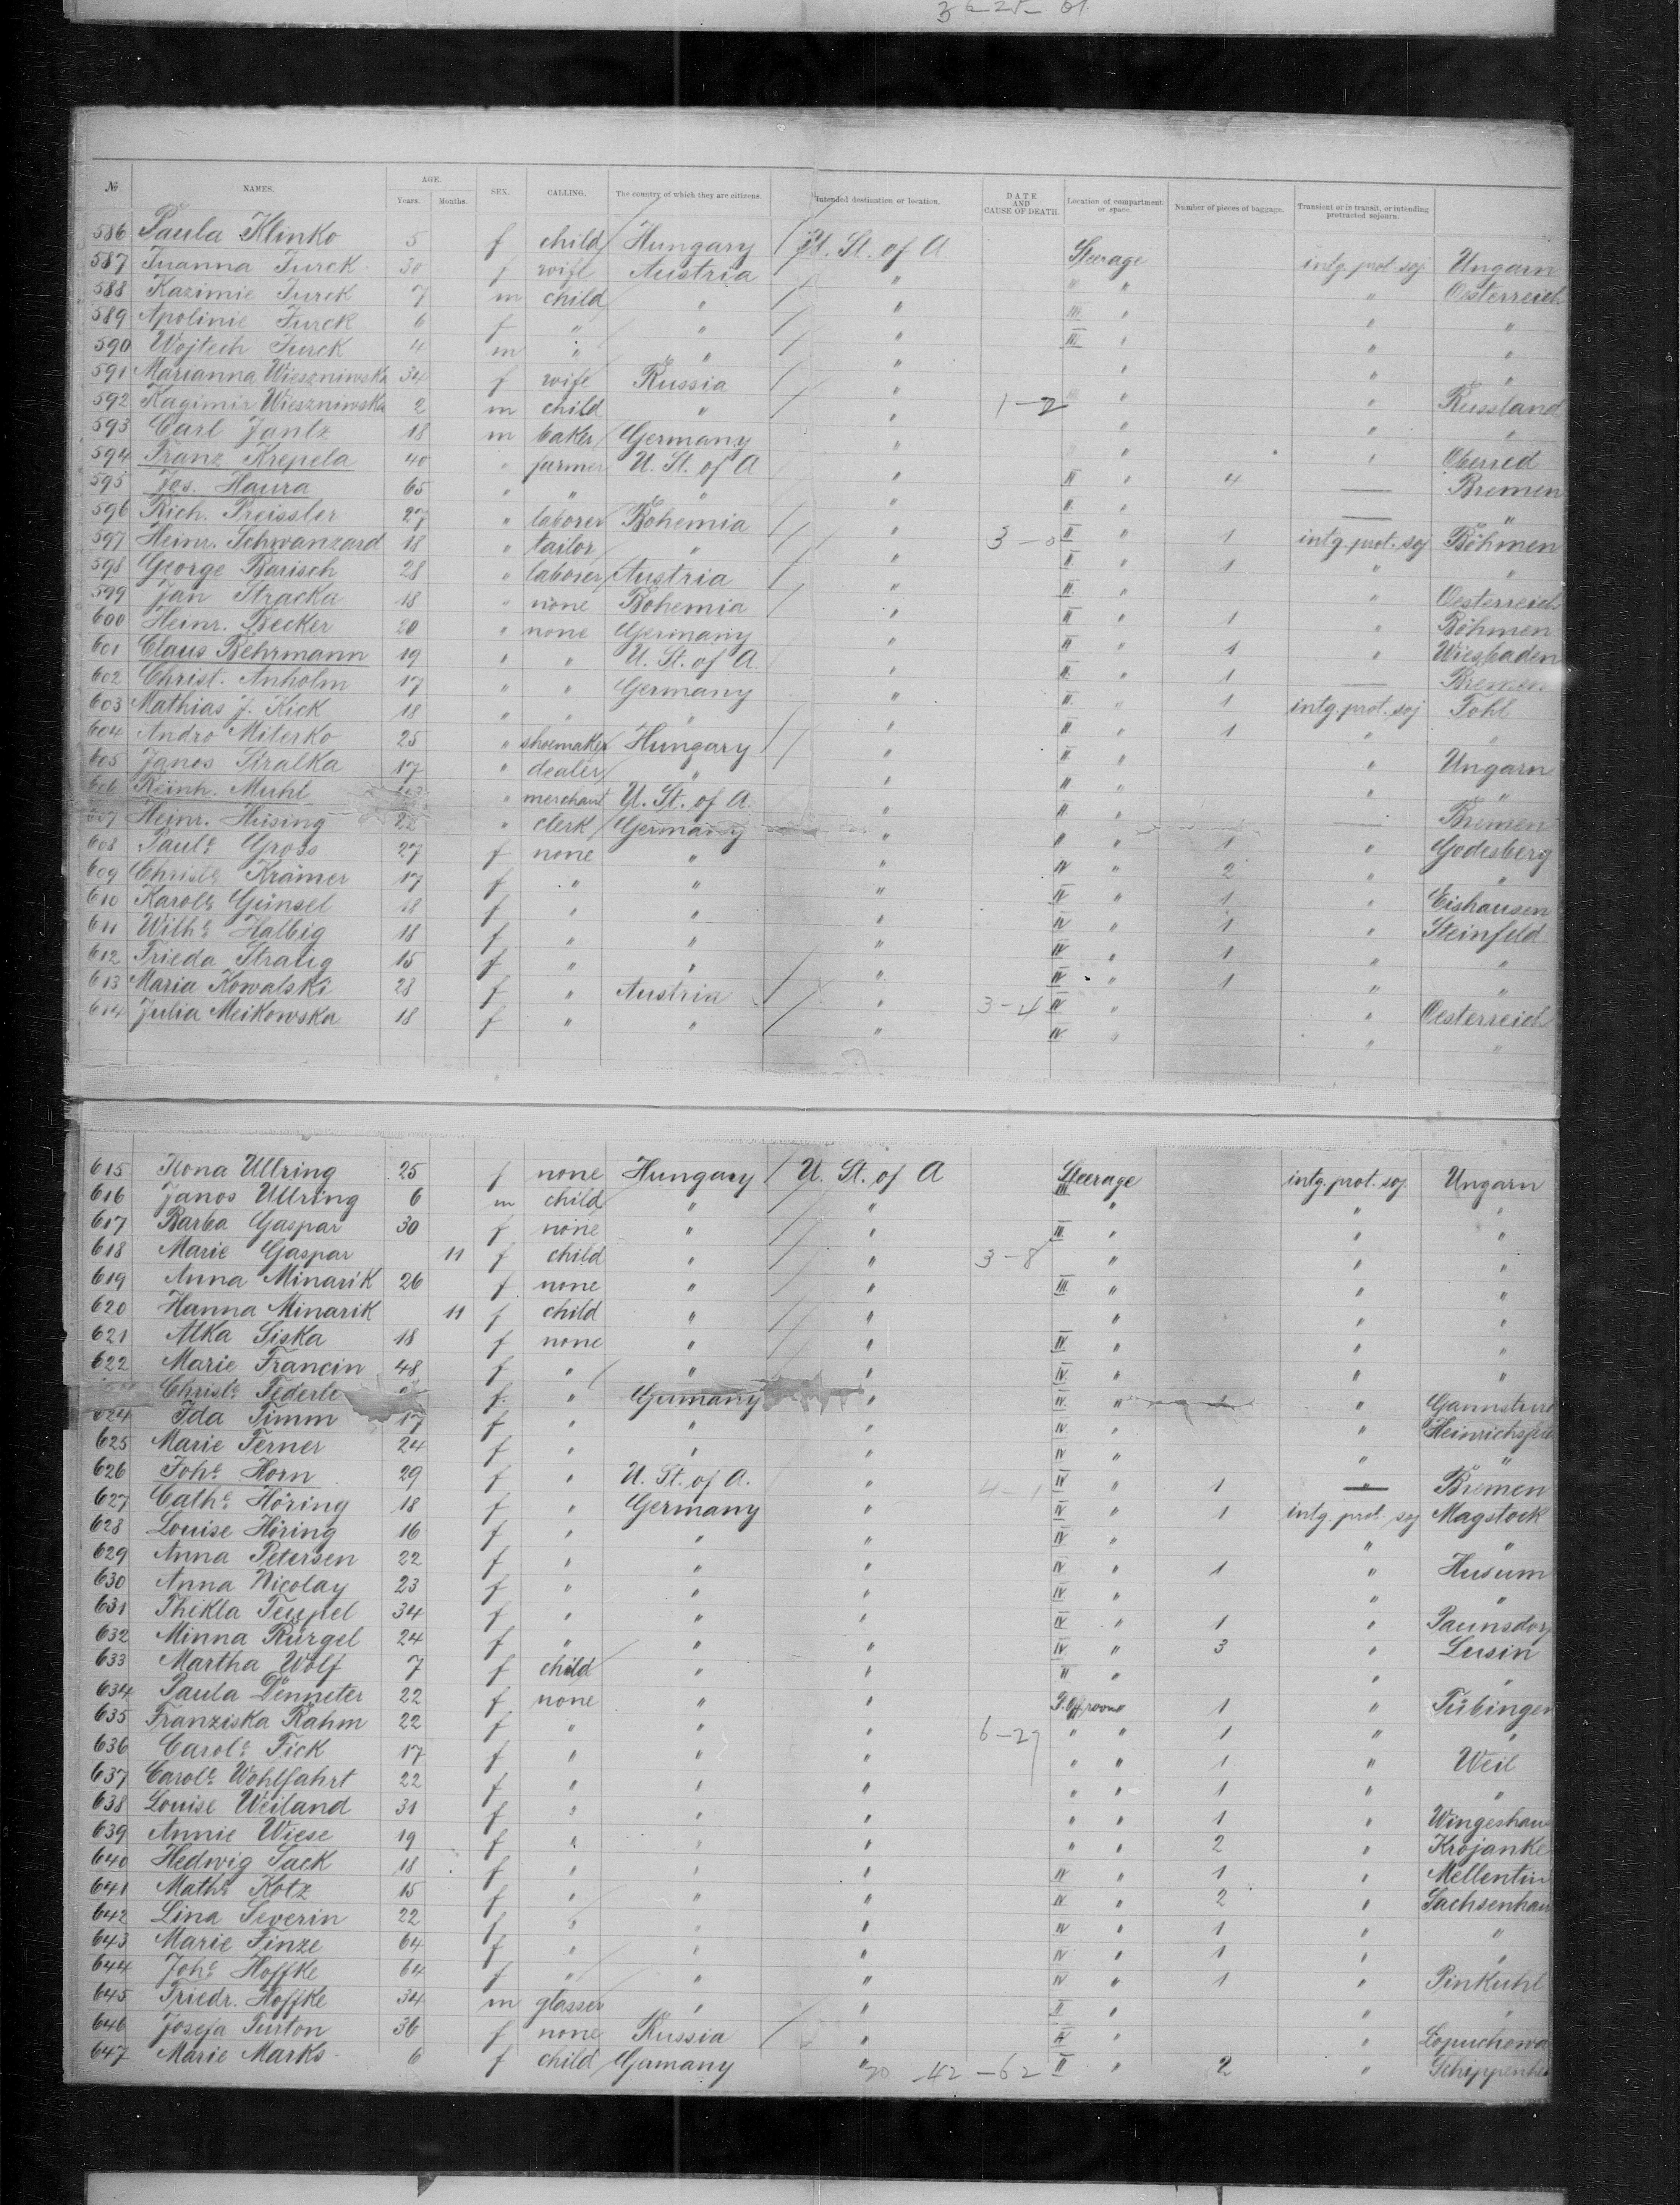 36-25-01
№ NAMES. AGE. Years. Months. SEX. CALLING. The country of which they are citizens. Intended destination or location. DATE AND CAUSE OF DEATH. Location of compartment or space. Number of pieces of baggage. Transient or in transit, or intending protracted sojourn.
586 Paula Klinko 5 f child Hungary U. St. of A Steerage intg. prot. soj Ungarn
587 Juanna Jurck 30 f wife Austria " III " " Oesterreich
588 Kazimie Jurck 7 m child " " III " " "
589 Apolinie Jurck 6 f " " " III " " "
590 Wojtech Jurck 4 m " " " " " "
591 Marianna Wieszniwska 34 f wife Russia " 1-2 " " Russland
592 Kagimir Wieszniwska 2 m child " " " " "
593 Carl Jantz 18 m baker Germany " " " Oberred
594 Franz Krepela 40 " farmer U. St. of A " II " 4 — Bremen
595 Jos. Haura 65 " " " " II " — "
596 Rich. Preissler 27 " laborer Bohemia " 3-0 II " 1 intg. prot. soj Böhmen
597 Heinr. Schwanzard 18 " tailor " " II " 1 " "
598 George Barisch 28 " laborer Austria " II " " Oesterreich
599 Jan Stracka 18 " none Bohemia " II " 1 " Böhmen
600 Heinr. Becker 20 " none Germany " II " 1 " Wiesbaden
601 Claus Behrmann 19 " " U. St. of A. " II " 1 — Bremen
602 Christ. Anholm 17 " " Germany " II " 1 intg. prot. soj Fohl
603 Mathias J. Kick 18 " " " " II " 1 " "
604 Andro Miterko 25 " shoemaker Hungary " II " " Ungarn
605 Janos Siralka 17 " dealer " " II " " "
606 Reinh. Muhl " merchant U. St. of A. " II " — Bremen
607 Heinr. Hüsing 22 " clerk Germany " II " 1 " Godesberg
608 Paule Gross 27 f none " " IV " 2 " "
609 Christe Krämer 17 f " " " IV " 1 " Eishausen
610 Karole Günsel 18 f " " " IV " 1 " Steinfeld
611 Wilhe Halbig 18 f " " " IV " 1 " "
612 Frieda Straug 15 f " " " IV " 1 " "
613 Maria Kowalski 28 f " Austria " 3-4 IV " " Oesterreich
614 Julia Meikowska 18 f " " " IV " " "
615 Ilona Ullring 25 f none Hungary U. St. of A Steerage intg. prot. soj. Ungarn
616 Janos Ullring 6 m child " " III " " "
617 Barba Gaspar 30 f none " " III " " "
618 Marie Gaspar 11 f child " " 3-8 " " "
619 Anna Minarik 26 f none " " III " " "
620 Hanna Minarik 11 f child " " " " "
621 Alka Siska 18 f none " " IV " " "
622 Marie Francin 48 f " " " IV " " "
Christe Federle f " Germany " IV " 1 " Gannsturs
624 Ida Timm 17 f " " " IV " "
625 Marie Ferner 24 f " " " IV " " "
626 Johe Horn 29 f " U. St. of A. " 4-1 IV " 1 — Bremen
627 Cathe Höring 18 f " Germany " IV " 1 intg. prot. soj Magstock
628 Louise Höring 16 f " " " IV " " "
629 Anna Petersen 22 f " " " IV " 1 " Husum
630 Anna Nicolay 23 f " " " IV " " "
631 Thikla Teupel 34 f " " " IV " 1 " Paunsdorf
632 Minna Rürgel 24 f " " " IV " 3 " Lusin
633 Martha Wolf 7 f child " " II " " "
634 Paula Denneter 22 f none " " P. Off room 1 " Tübingen
635 Franziska Rahm 22 f " " " 6-27 " " 1 " "
636 Carole Fick 17 f " " " " " 1 " Weil
637 Carole Wohlfahrt 22 f " " " " " 1 " "
638 Louise Weiland 31 f " " " " " 1 " Wingeshaus
639 Annie Wiese 19 f " " " " " 2 " Krojanke
640 Hedwig Sack 18 f " " " IV " 1 " Mellentin
641 Mathe Kotz 15 f " " " IV " 2 " Sachsenhau
642 Lina Severin 22 f " " " IV " 1 " "
643 Marie Finze 64 f " " " IV " 1 " "
644 Johe Hoffke 64 f " " " IV " 1 " Pinkuhl
645 Friedr. Hoffke 34 m glasser " " II " " "
646 Josefa Turton 36 f none Russia " IV " " Lopuchowa
647 Marie Marks 6 f child Germany " 20 42-62 II " 2 " Schippenbe